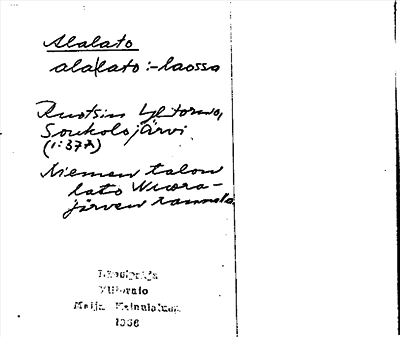 Alalato
ala|lato :-laossa
Ruotsin Ylitornio,
Soukolojärvi
(1:37A)
Niemen talon
lato Vuora-
järven rannalla
Ylitornio
Maija
1966